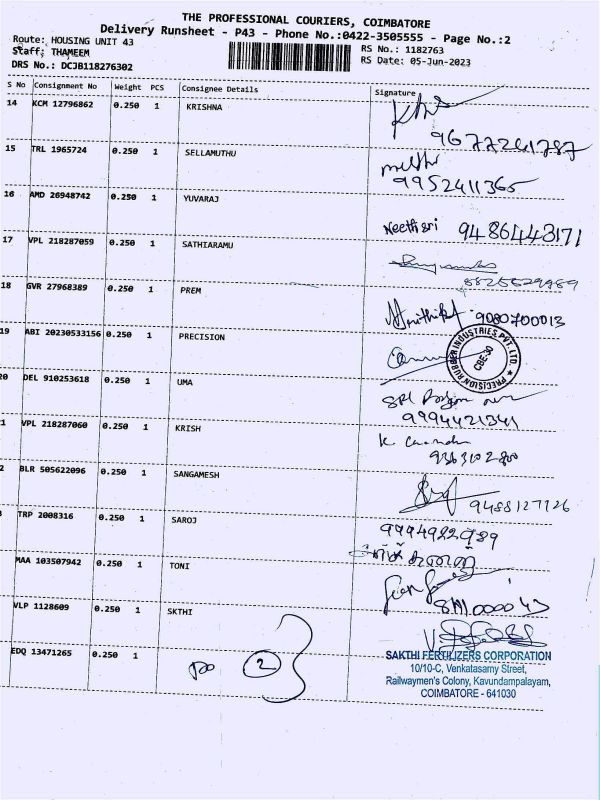 THE PROFESSIONAL COURIERS, COIMBATORE
Delivery Runsheet - P43 - Phone No.:0422-3505555 - Page No.:2
Route: HOUSING UNIT 43 RS No.: 1182763
Staff: THAMEEM RS Date: 05-Jun-2023
DRS No.: DCJB118276302
S No Consignment No Weight PCS Consignee Details Signature
14 KCM 12796862 0.250 1 KRISHNA
9677241787
15 TRL 1965724 0.250 1 SELLAMUTHU
9952411365
16 AMD 26948742 0.250 1 YUVARAJ
Neethisri 9486443171
17 VPL 218287059 0.250 1 SATHIARAMU
18 GVR 27968389 0.250 1 PREM
9080700013
19 ABI 20230533156 0.250 1 PRECISION
PRECISION RUBBER INDUSTRIES PVT. LTD. CBE-30
20 DEL 910253618 0.250 1 UMA
SRI
9994421341
1 VPL 218287060 0.250 1 KRISH
K.
9363102800
2 BLR 505622096 0.250 1 SANGAMESH
9488127726
TRP 2008316 0.250 1 SAROJ
9994922989
MAA 103507942 0.250 1 TONI
VLP 1128609 0.250 1 SKTHI
EDQ 13471265 0.250 1
2
SAKTHI FERTILIZERS CORPORATION
10/10-C, Venkatasamy Street,
Railwaymen's Colony, Kavundampalayam,
COIMBATORE - 641030